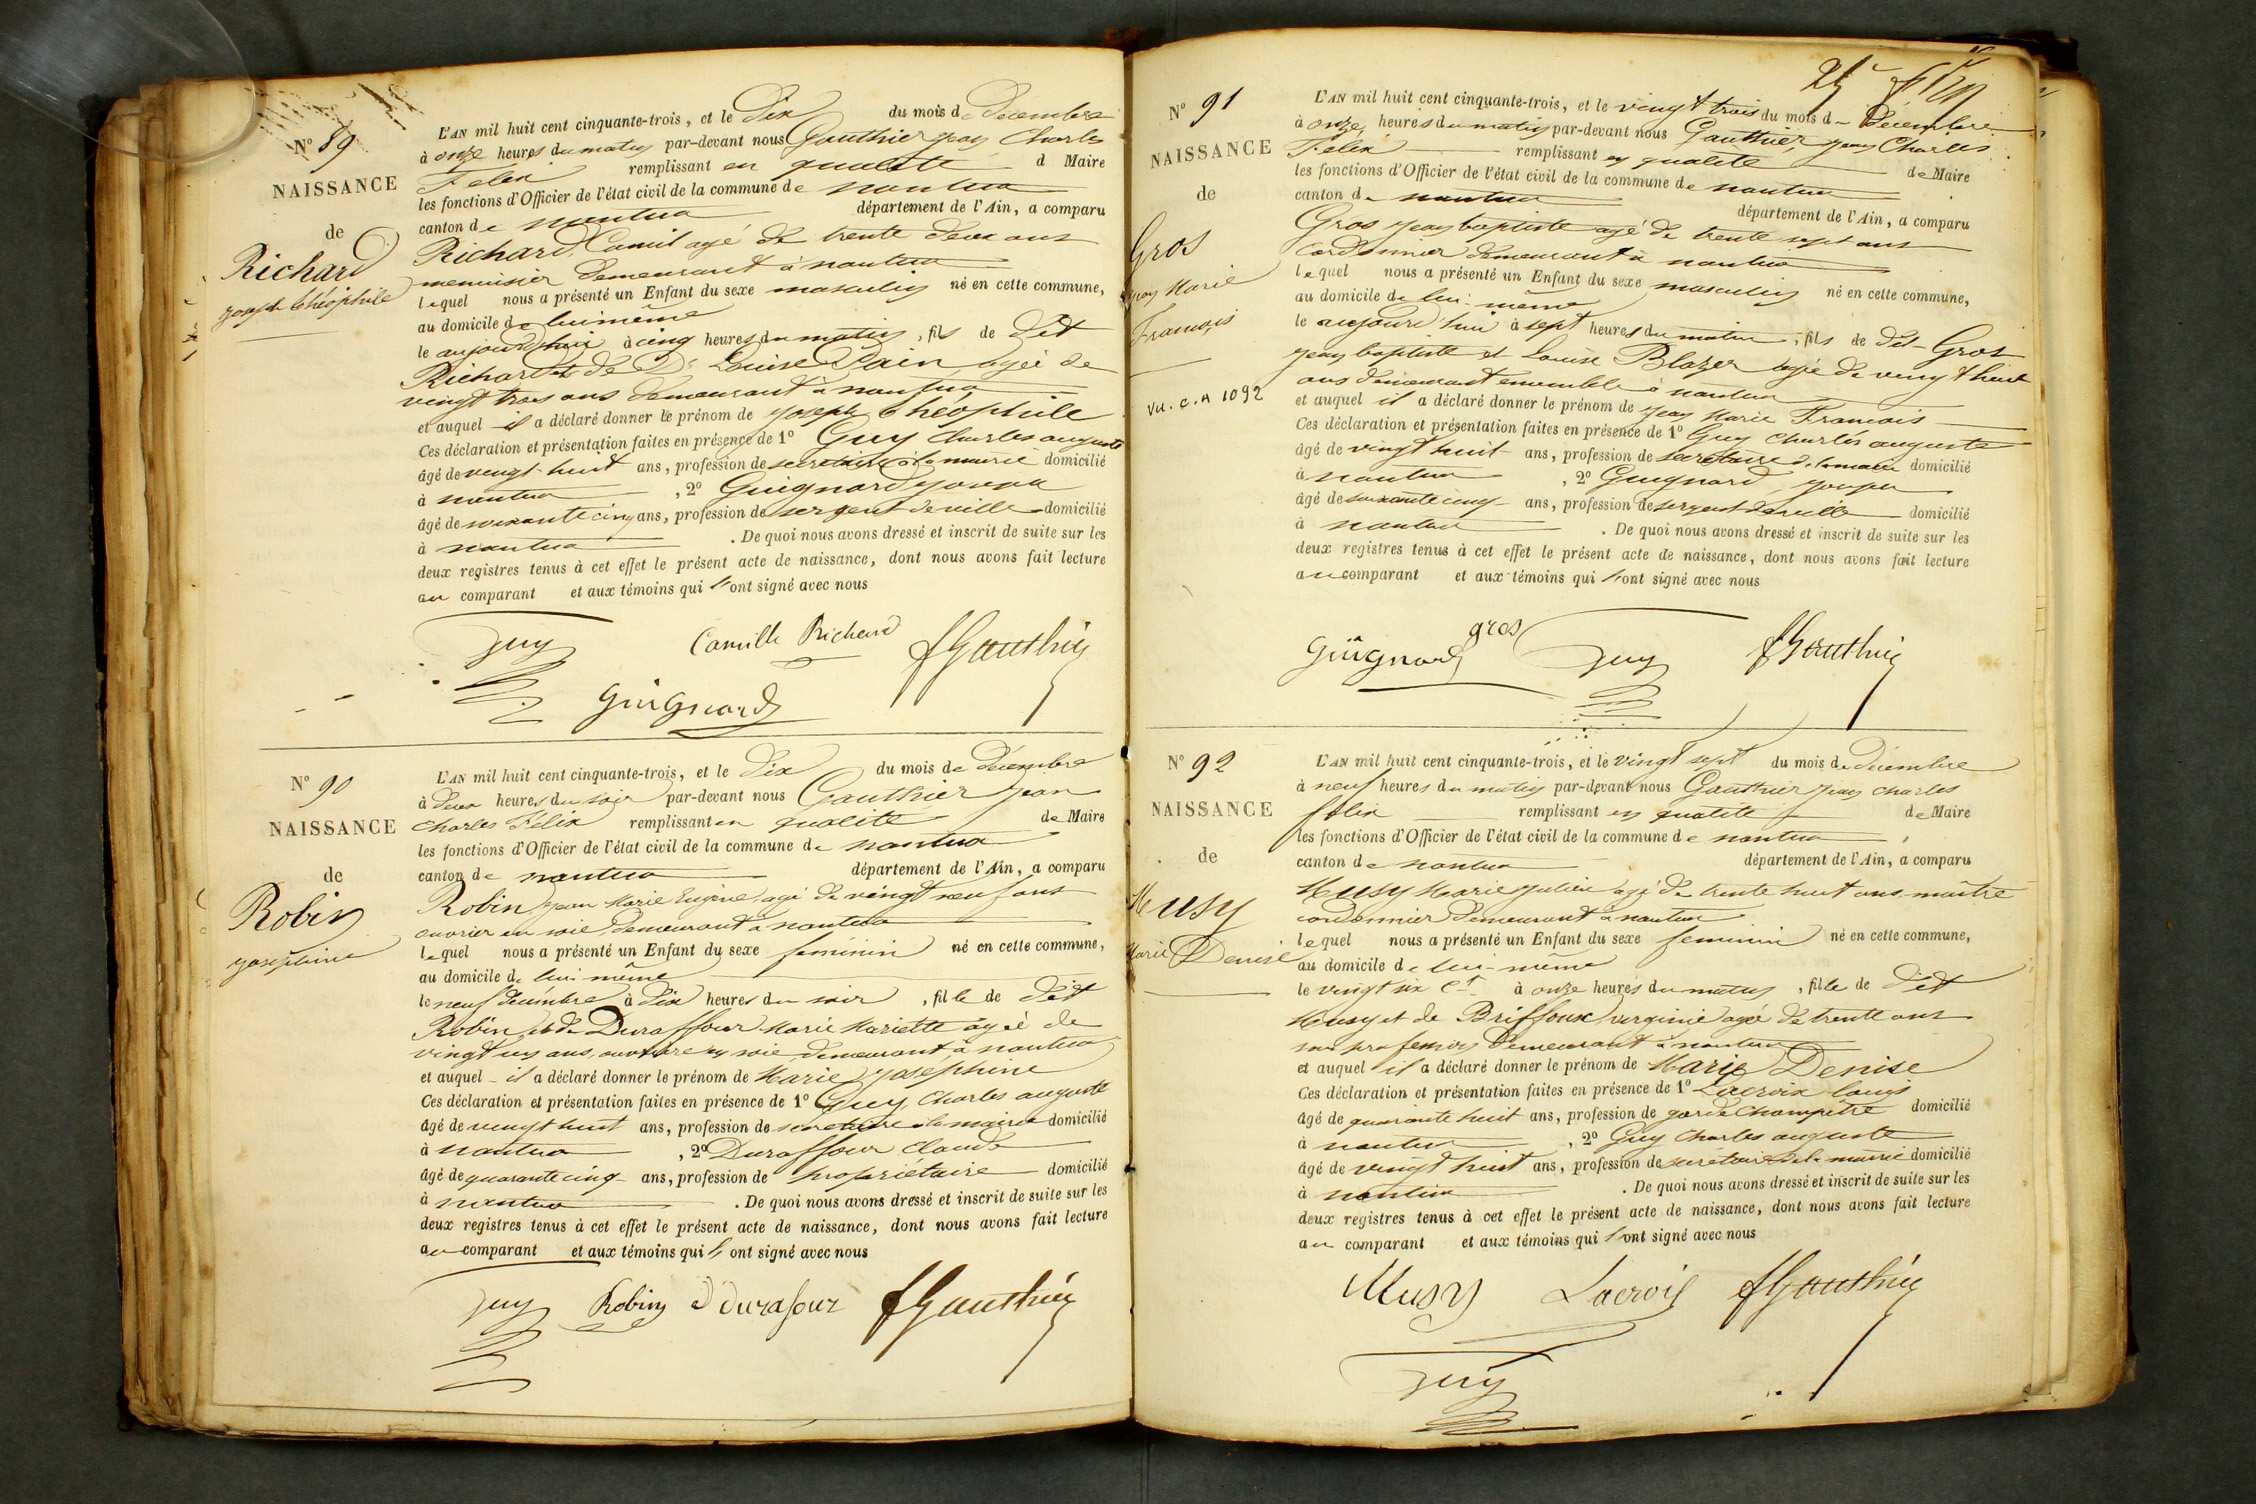 N° 89
NAISSANCE
de
Richard
Joseph Théophile
L'AN mil huit cent cinquante-trois, et le Dix du mois de Décembre
à onze heures du matin par-devant nous Gauthier Jean Charles
Felix remplissant en qualité d Maire
les fonctions d'Officier de l'état civil de la commune de nantua
canton de nantua département de l'Ain, a comparu
Richard Camil agé de trente deux ans
menuisier demeurant à nantua
lequel nous a présenté un Enfant du sexe masculin né en cette commune,
au domicile de lui même
le aujourd'hui à cinq heures du matin, fils de dit
Richard et de De Louise Pain, agée de
vingt trois ans demeurant à nantua
et auquel il a déclaré donner le prénom de Joseph Théophile
Ces déclaration et présentation faites en présence de 1° Guy Charles auguste
âgé de vingt-huit ans, profession de secrétaire de la mairie domicilié
à nantua, 2° Guignard Joseph
âgé de soixante cinq ans, profession de sergent de ville domicilié
à nantua. De quoi nous avons dressé et inscrit de suite sur les
deux registres tenus à cet effet le présent acte de naissance, dont nous avons fait lecture
au comparant et aux témoins qui l'ont signé avec nous
Guy Camille Richard fGauthier
Guignard
N° 90
NAISSANCE
de
Robin
Josephine
L'AN mil huit cent cinquante-trois, et le dix du mois de Décembre
à deux heures du soir par-devant nous Gauthier Jean
Charles Félix remplissant en qualité de Maire
les fonctions d'Officier de l'état civil de la commune de nantua
canton de nantua département de l'Ain, a comparu
Robin Jean Marie Eugène agé de vingt neuf ans
ouvrier en soie demeurant à nantua
lequel nous a présenté un Enfant du sexe féminin né en cette commune,
au domicile de lui même
le neuf décembre à dix heures du soir, fille de dit
Robin et de Duraffour Marie Mariette agée de
vingt un ans, ouvrière en soie demeurant à nantua
et auquel il a déclaré donner le prénom de Marie Josephine
Ces déclaration et présentation faites en présence de 1° Guy Charles auguste
âgé de vingt huit ans, profession de secrétaire de la mairie domicilié
à nantua, 2° Duraffour Claude
âgé de quarante cinq ans, profession de propriétaire domicilié
à nantua. De quoi nous avons dressé et inscrit de suite sur les
deux registres tenus à cet effet le présent acte de naissance, dont nous avons fait lecture
au comparant et aux témoins qui l'ont signé avec nous
Guy Robin durafour fGauthier
N° 91
NAISSANCE
de
Gros
Jean Marie
Francois
Vu. C. A 1092
L'AN mil huit cent cinquante-trois, et le vingt trois du mois de Décembre
à onze heures du matin par-devant nous Gauthier Jean Charles
Felix remplissant en qualité de Maire
les fonctions d'Officier de l'état civil de la commune de nantua
canton de nantua département de l'Ain, a comparu
Gros Jean baptiste agé de trente sept ans
Cordonnier demeurant à nantua
lequel nous a présenté un Enfant du sexe masculin né en cette commune,
au domicile de lui-même
le aujourd'hui à sept heures du matin, fils de dit Gros
Jean baptiste et Louise Blazer agée de vingt huit
ans demeurant ensemble à nantua
et auquel il a déclaré donner le prénom de Jean Marie Francois
Ces déclaration et présentation faites en présence de 1° Guy Charles auguste
âgé de vingt huit ans, profession de secretaire de la mairie domicilié
à nantua, 2° Guignard Joseph
âgé de soixante cinq ans, profession de sergent de ville domicilié
à nantua. De quoi nous avons dressé et inscrit de suite sur les
deux registres tenus à cet effet le présent acte de naissance, dont nous avons fait lecture
au comparant et aux témoins qui l'ont signé avec nous
gros
Guignard Guy fGauthier
N° 92
NAISSANCE
de
Musy
Marie Denise
L'AN mil huit cent cinquante-trois, et le vingt sept du mois de décembre
à neuf heures du matin par-devant nous Gauthier Jean Charles
felix remplissant en qualité de Maire
les fonctions d'Officier de l'état civil de la commune de nantua
canton de nantua département de l'Ain, a comparu
Musy Marie Julien agé de trente huit ans maître
cordonnier demeurant à nantua
lequel nous a présenté un Enfant du sexe feminin né en cette commune,
au domicile de lui-même
le vingt six Ct à onze heures du matin, fille de dit
Musy et de Briffoux virginie agée de trente ans
sans profession demeurant à nantua
et auquel il a déclaré donner le prénom de Marie Denise
Ces déclaration et présentation faites en présence de 1° Lacroix louis
âgé de quarante huit ans, profession de garde Champêtre domicilié
à nantua, 2° Guy Charles auguste
âgé de vingt huit ans, profession de secrétaire de la mairie domicilié
à nantua. De quoi nous avons dressé et inscrit de suite sur les
deux registres tenus à cet effet le présent acte de naissance, dont nous avons fait lecture
au comparant et aux témoins qui l'ont signé avec nous
Musy Lacroix fGauthier
Guy